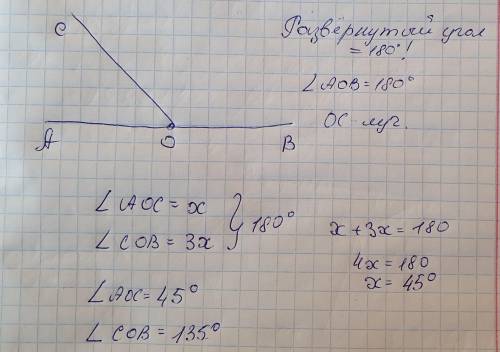 C
Развёрнутый угол
= 180°!
∠AOB = 180°
A O B
OC - луч.
∠AOC = x
∠COB = 3x
} 180°
x + 3x = 180
4x = 180
x = 45°
∠AOC = 45°
∠COB = 135°